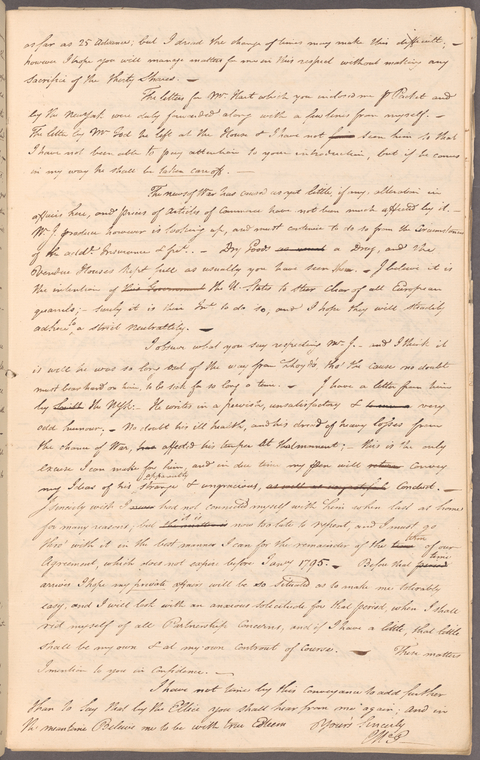 as far as 25 Advance; but I dread the change of times may make this difficult; —
however I hope you will manage matters for me in this respect without making any
Sacrifice of the thirty Shares. —
The letters for Mr Hart which you inclosed me pr Packet and
by the New York were duly forwarded along with a few lines from myself. —
The letter by Mr God he left at the House & I have not seen him so that
I have not been able to pay attention to your introduction, but if he comes
in my way he shall be taken care of. —
The news of War has caused as yet little, if any, alteration in
affairs here, and prices of Articles of Commerce have not been much affected by it. —
W. I. produce however is looking up, and must continue to do so from the Circumstance
of the addl. Insurance & frt. — Dry Goods a Drug, and the
Overdue Houses kept full as usually you have seen them. — I believe it is
the intention of this Government the U. States to steer clear of all European
quarrels; — surely it is their Int. to do so, and I hope they will steadily
adhere to a strict neutrality. —
I observe what you say respecting Mr J. — and I think it
is well he was so long out of the way from Lloyd's, tho' the cause no doubt
must bear hard on him, to be sick for so long a time. — I have a letter from him
by the Wm. P. — He writes in a peevish, unsatisfactory & very
odd humour. — No doubt his ill health, and his dread of heavy losses from
the chance of War, affected his temper at that moment; — this is the only
excuse I can make for him, and in due time my pen will convey
my Ideas of his apparently strange & ungracious, Conduct. —
Sincerely wish I had not connected myself with him when last at home
for many reasons; but it is now too late to repent, and I must go
thro' with it in the best manner I can for the remainder of the term of our
Agreement, which does not expire before Jany 1795. — Before that time
arrives I hope my private affairs will be so situated as to make me tolerably
easy, and I will look with an anxious solicitude for that period, when I shall
rid myself of all Partnership Concerns, and if I have a little, that little
shall be my own & at my own controul of course. — These matters
I mention to you in confidence. —
I have not time by this conveyance to add further
than to say that by the Ellice you shall hear from me again; and in
the meantime Believe me to be with true Esteem Yours Sincerely